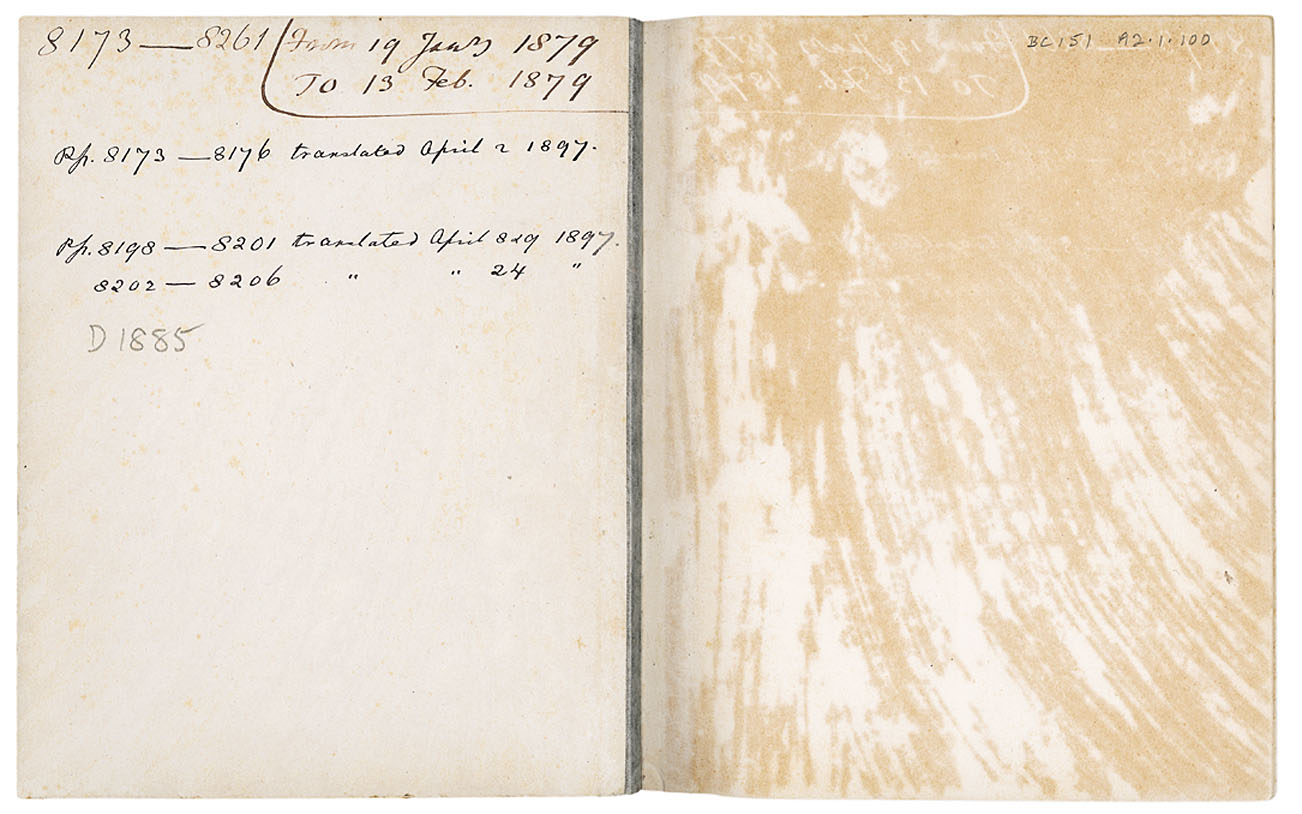 8173 — 8261 From 19 Jany 1879
To 13 Feb. 1879
Pp. 8173 — 8176 translated April 2 1897.
Pp. 8198 — 8201 translated April 8&9 1897.
8202 — 8206 " " 24 "
D 1885
BC151 A2.1.100